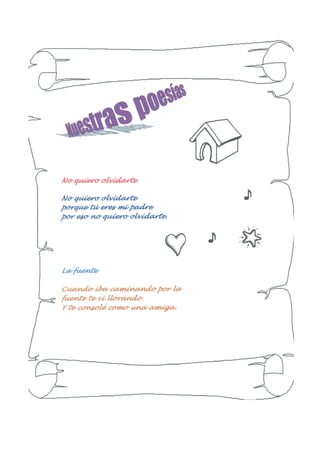 Nuestras poesías
No quiero olvidarte
No quiero olvidarte
porque tú eres mi padre
por eso no quiero olvidarte.
La fuente
Cuando iba caminando por la
fuente te vi llorando.
Y te consolé como una amiga.